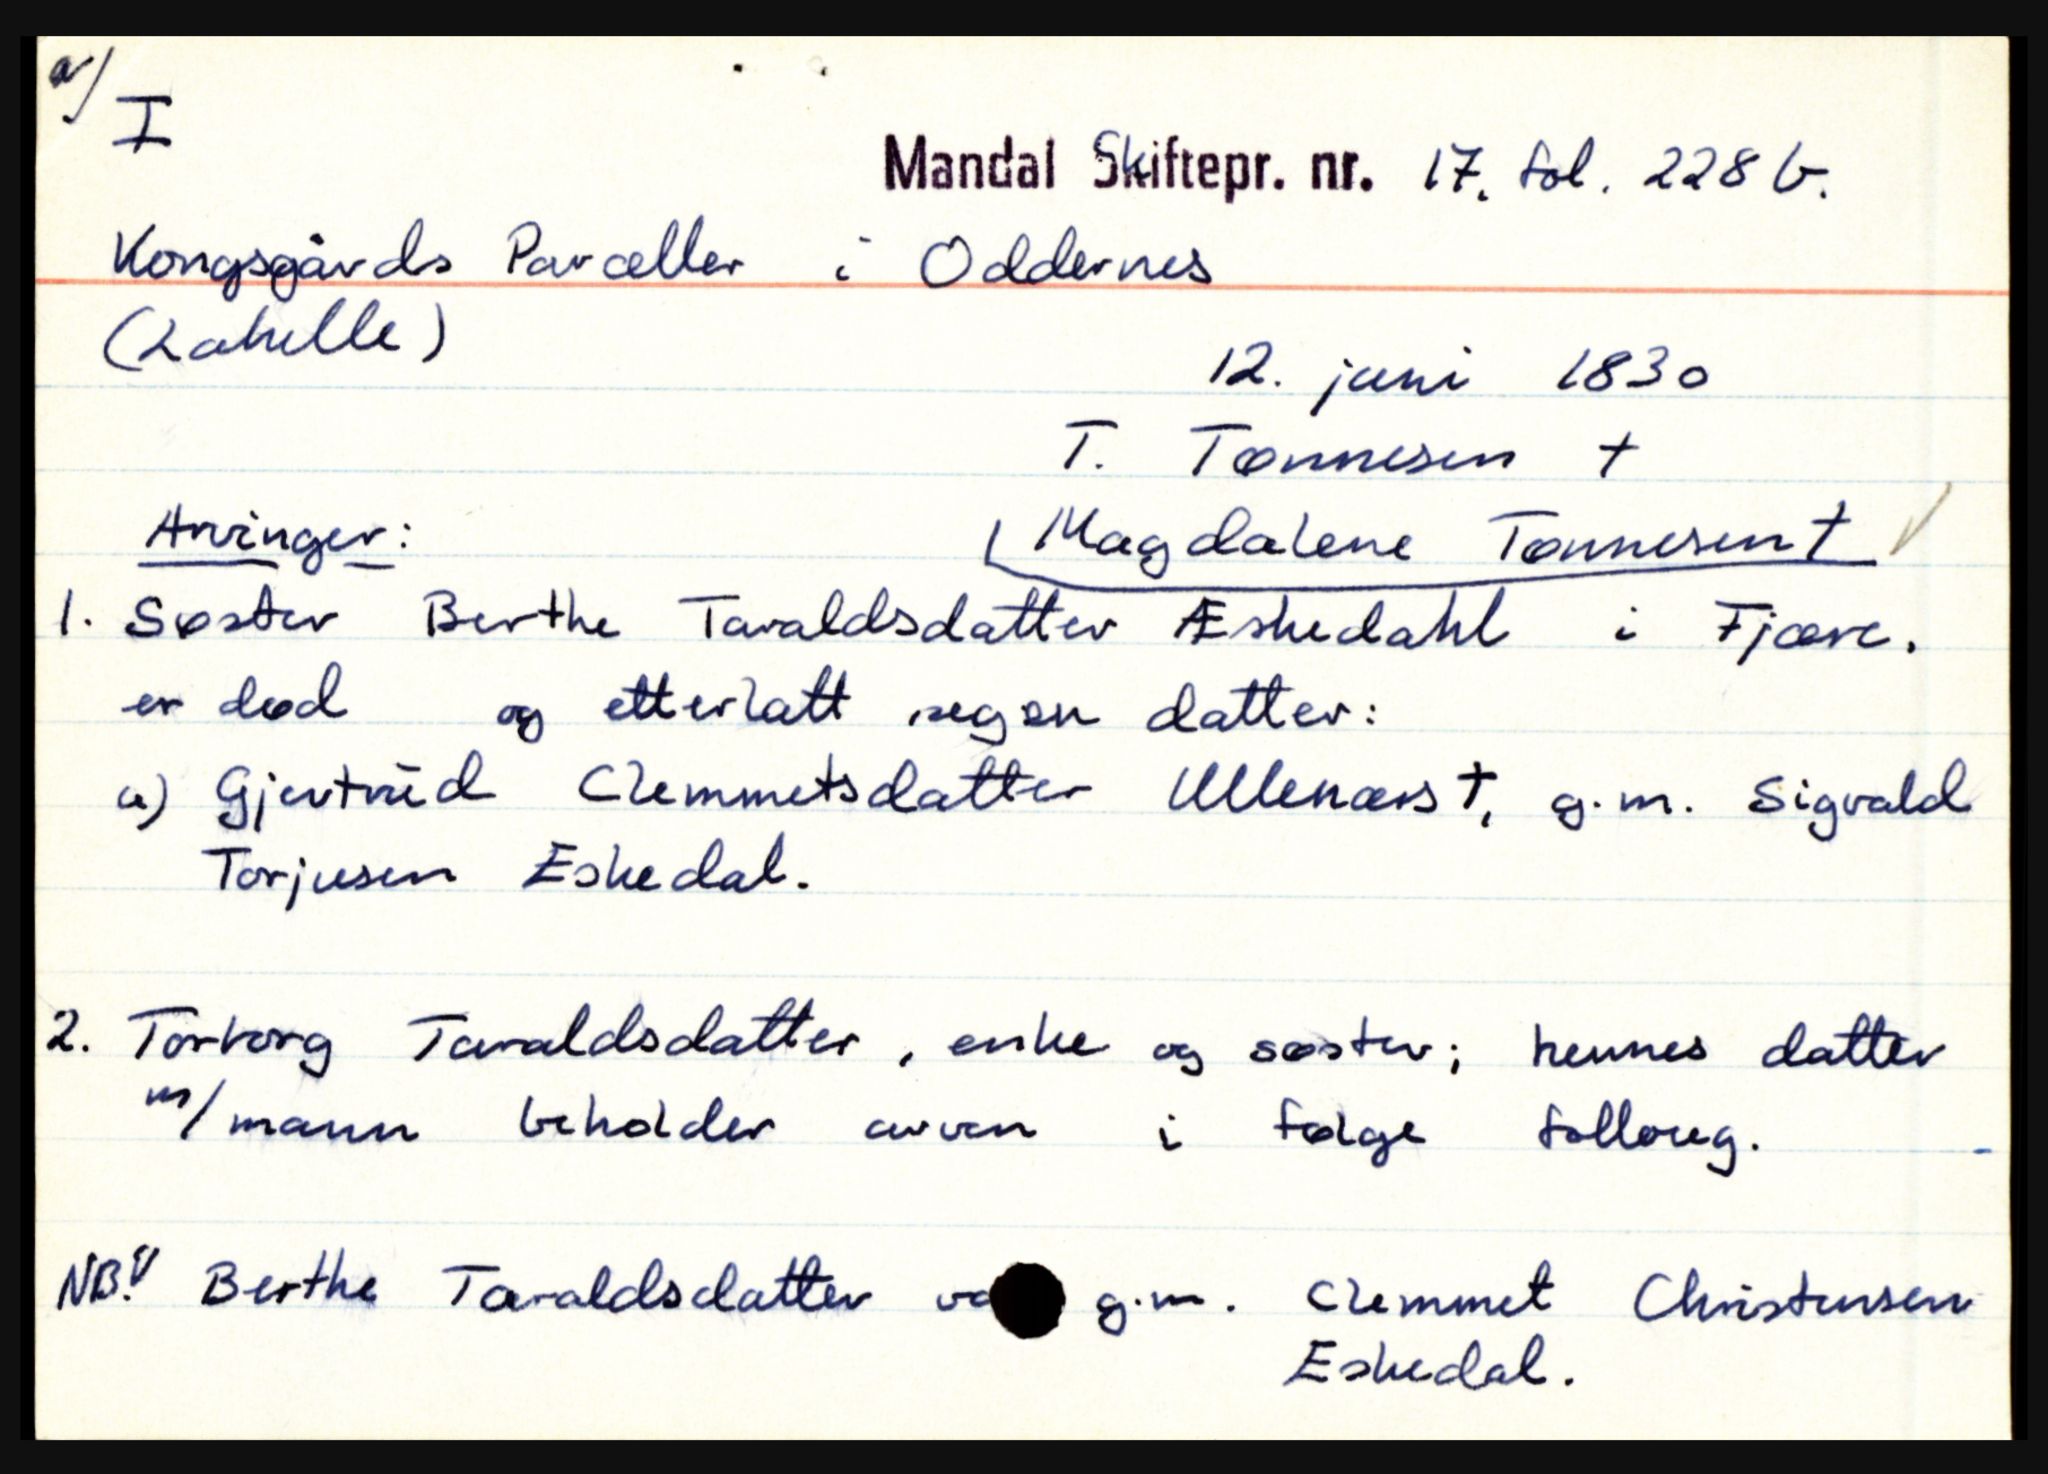 a/
I
Mandal Skiftepr. nr. 17. fol. 228 b.
Kongsgårds Parceller i Oddernes
(Lahelle)
12. juni 1830
T. Tønnesen †
Arvinger:
Magdalene Tønnesen †
1. Søster Berthe Taraldsdatter Æskedahl i Fjære.
er død og etterlatt seg en datter:
a) Gjertrud Clemmetsdatter Ullenæs †, g.m. Sigvald
Torjusen Eskedal.
2. Torborg Taraldsdatter, enke og søster; hennes datter
m/mann beholder arven i følge folloug.
NB! Berthe Taraldsdatter va g.m. Clemmet Christensen
Eskedal.